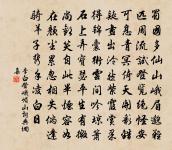 蜀國多仙山峨眉邈難
匹周流試登覽絕怪安
可息青冥倚天開彩錯
疑畫出泠然紫霞賞果
得錦囊術雲間吟瓊簫
石上弄寶瑟平生有微
尚歡笑自此畢煙容如
在顏塵累忽相失倘逢
騎羊子攜手凌白日
李白登峨眉山詩